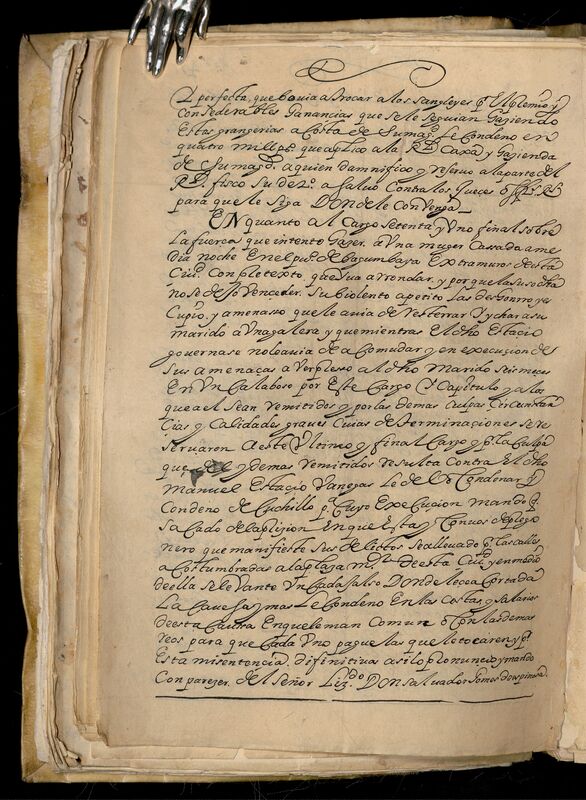 perfecta, que bavia a trocar a los sangleyes pr. El gremio y
Considerables Ganancias que se le seguian Gaziendo
Estas grangerias a Costa de Su magd. Le Condeno en
quatro mill ps. que aplico a la Rl. Caxa y Gazienda
de Su magd. a quien damnifico y reservo a la parte del
Rl. fisco Su dro. a Salvo Contra los Jueces
para que le Siga Donde le Convenga
EN quanto al Cargo Setenta y Uno final sobre
La fuerça que intento Gazer, a Una muger Cassada a me
dia noche En el pueo. de bagumbaya Extramuros desta
Ciud. Con pletexto, que iva a rrondar, y porque la suso dha
no se dejo Venceder, Su biolento apetito, las desGonrro y es
Cupio, y amenasso que le avia de desterrar y hechar a su
marido a Una galera y que mientras El dho Estacio
governase no le avia de acomudar y en execucion de
Sus amenaças a verplesso Al dho Marido Seis meçes
En Un Calaboso por Este Cargo Capitulo y a los
que a el Sean remitidos y por las demas Culpas Circunstan
cias y Calidades graves Cuias determinaciones Se re
Servaron a este Ultimo y final Cargo y pr. la Culpa
que de el y demas remitidos resulta Contra El dho
Manuel Estacio Vanegas Le debo Condenar y
Condeno de Cuchillo pa. Cuyo Exe Cucion mando
Sacado de la plission En que Esta y Con vos de prego
nero que manifieste Sus delictos Sea llevado pr. las calles
acostumbradas a la plaza mor. de esta Ciud. y en medio
de ella Se levante Un Cadahalso Donde le Sea Cortada
La Caveça y mas Le Condeno En las Costas y Salarios
de esta Caussa En que le man Comun Con los demas
reos para que Cada Uno pague las que le tocaren, y pr.
Esta mi sentencia difinitiva asi lo pronuncio y mando
Con pareçer del Señor Lizdo. Don Salvador Gomes de espinosa